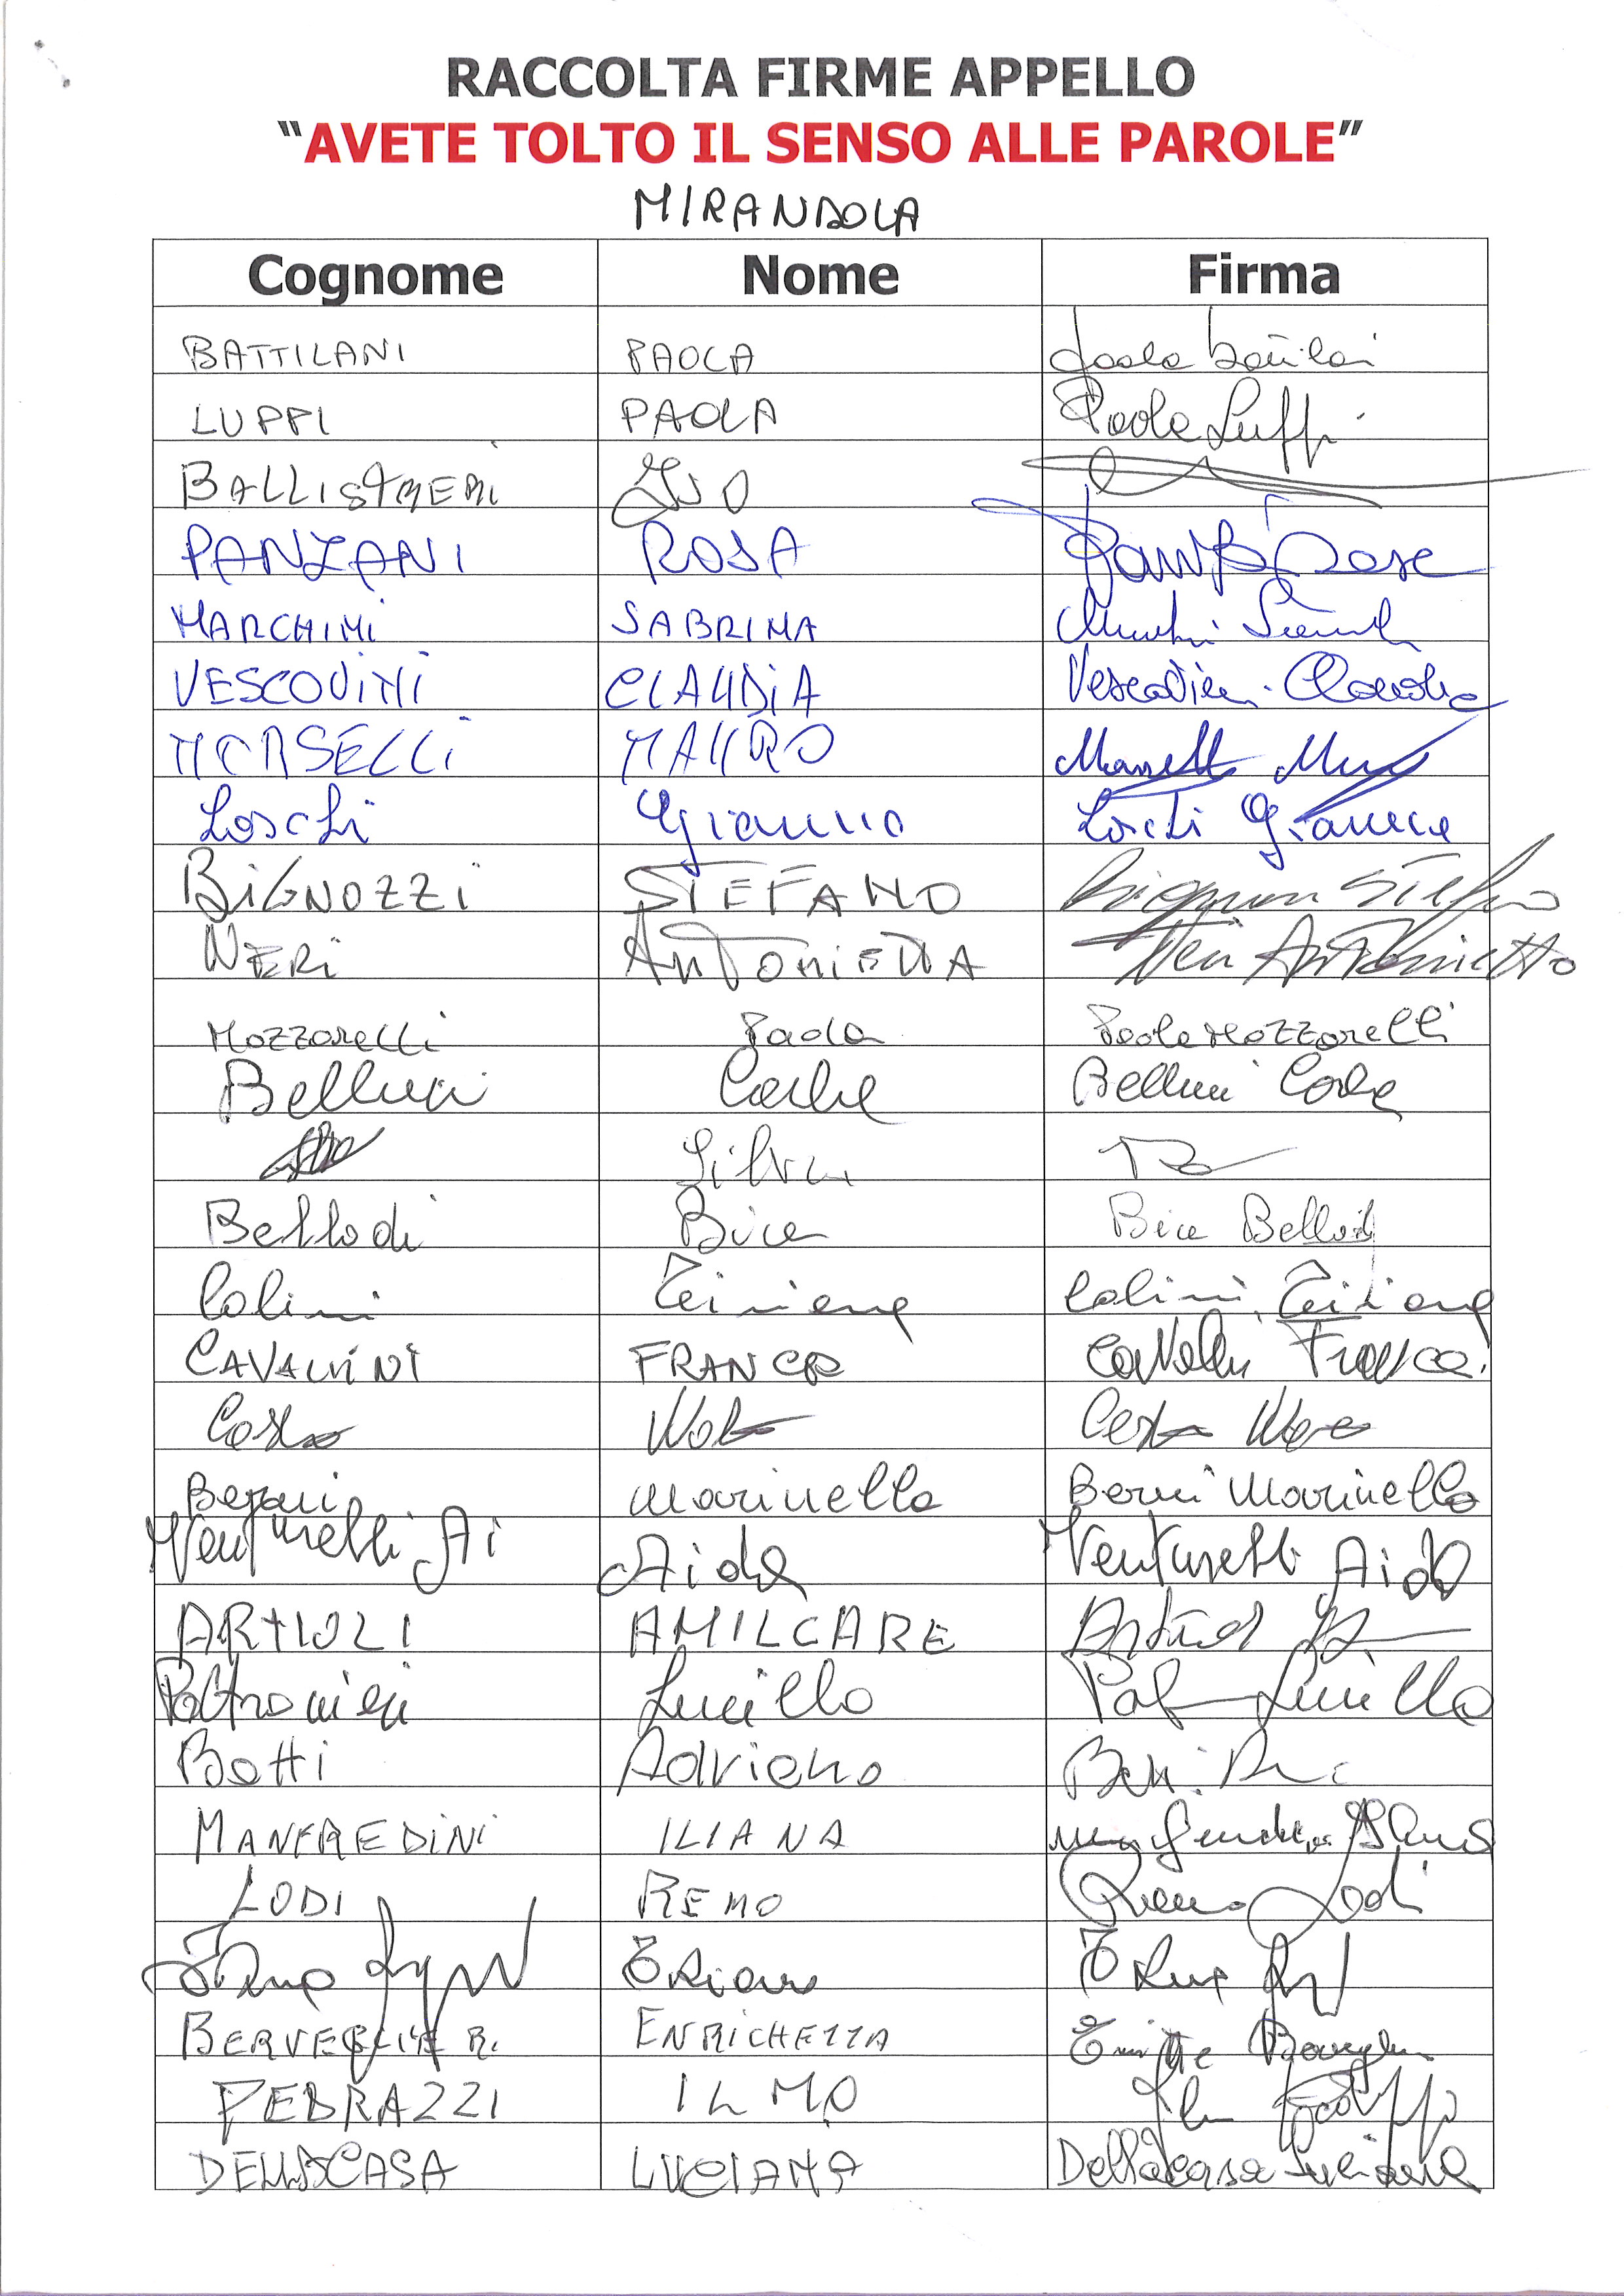 RACCOLTA FIRME APPELLO
“AVETE TOLTO IL SENSO ALLE PAROLE”
MIRANDOLA
Cognome Nome Firma
BATTILANI PAOLA Paola Battilani
LUPPI PAOLA Paola Luppi
BALLISTRERI IVO
PANZANI ROSA Rosa
MARCHINI SABRINA
VESCOVINI CLAUDIA Vescovini Claudia
MORSELLI MAURO Morselli Mauro
Loschi Gianna Loschi Gianna
BIGNOZZI STEFANO Bignozzi Stefano
NERI ANTONIETTA Neri Antonietta
Mozzarelli Paola Paola Mozzarelli
Bellini Carla Bellini Carla
Silvia
Bellodi Bice Bice Bellodi
Colini Tiziana Colini Tiziana
CAVALLINI FRANCA Cavallini Franca
Costa
Marinella Berni Marinella
Venturelli Ai Aida Venturelli Aida
ARTIOLI AMILCARE Artioli
Poltronieri Lucilla Lucilla
Botti Adriano
MANFREDINI ILIANA Manfredini Iliana
LODI REMO Remo Lodi
BERVEGLIERI ENRICHETTA
PEDRAZZI ILMO
DELLA CASA LUCIANA Della Casa Luciana